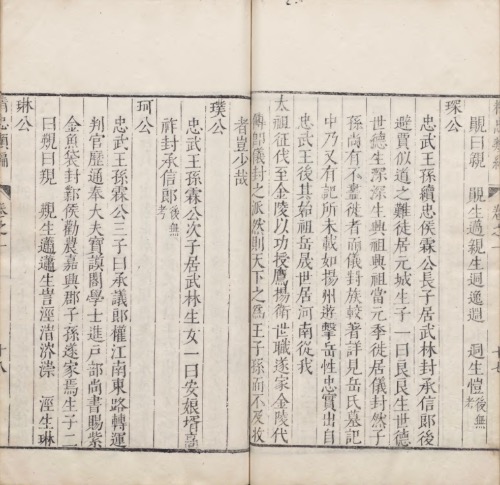 覶曰覞 覶生遹覞生迥邈遐 迥生愷考
琛公
忠武王孫續忠侯霖公長子居武林封承信郎後
避賈似道之難徙居元城生子一曰艮艮生世德
世德生深深生興祖興祖當元季徙居儀封然子
孫尚有不盡徙者而儀封族較著詳見岳氏墓記
中乃又有記所未載如揚州遊擊岳性忠實出自
忠武王後其始祖岳晟世居河南從我
太祖征伐至金陵以功授鷹揚衛世職遂家金陵代
傳即儀封之派然則天下之爲王子孫而不及收
者豈少哉
璞公
忠武王孫霖公次子居武林生女一曰安娘壻
祚封承信郎後無考
珂公
忠武王孫霖公三子曰承議郎權江南東路轉運
判官歷通奉大夫寶謨閣學士進戸部尚書賜紫
金魚袋封鄴侯勸農嘉興郡子孫遂家焉生子二
曰覶曰覞 覶生遹遹生岊 涇生琳
琳公
卷之一 十八